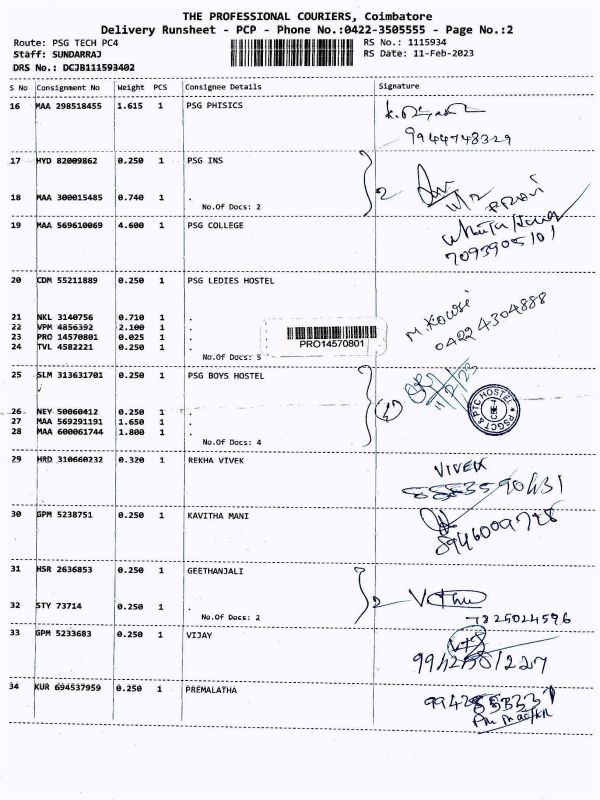 THE PROFESSIONAL COURIERS, Coimbatore
Delivery Runsheet - PCP - Phone No.:0422-3505555 - Page No.:2
Route: PSG TECH PC4 RS No.: 1115934
Staff: SUNDARRAJ RS Date: 11-Feb-2023
DRS No.: DCJB111593402
S No Consignment No Weight PCS Consignee Details Signature
16 MAA 298518455 1.615 1 PSG PHISICS
9944748329
17 HYD 82009862 0.250 1 PSG INS
2
18 MAA 300015485 0.740 1 .
No.Of Docs: 2
19 MAA 569610069 4.600 1 PSG COLLEGE
7093905101
20 CDM 55211889 0.250 1 PSG LEDIES HOSTEL
M. Kowsi
0422 4304888
21 NKL 3140756 0.710 1 .
22 VPM 4856392 2.100 1 .
23 PRO 14570801 0.025 1 .
24 TVL 4582221 0.250 1 .
PRO14570801
No.Of Docs: 5
25 SLM 313631701 0.250 1 PSG BOYS HOSTEL
11/2/23
PSGCT & PTC HOSTEL
26 NEY 50060412 0.250 1 .
27 MAA 569291191 1.650 1 .
28 MAA 600061744 1.800 1 .
No.Of Docs: 4
29 HRD 310660232 0.320 1 REKHA VIVEK
VIVEK
30 GPM 5238751 0.250 1 KAVITHA MANI
8946009728
31 HSR 2636853 0.250 1 GEETHANJALI
2
32 STY 73714 0.250 1 .
No.Of Docs: 2
7825024596
33 GPM 5233683 0.250 1 VIJAY
34 KUR 694537959 0.250 1 PREMALATHA